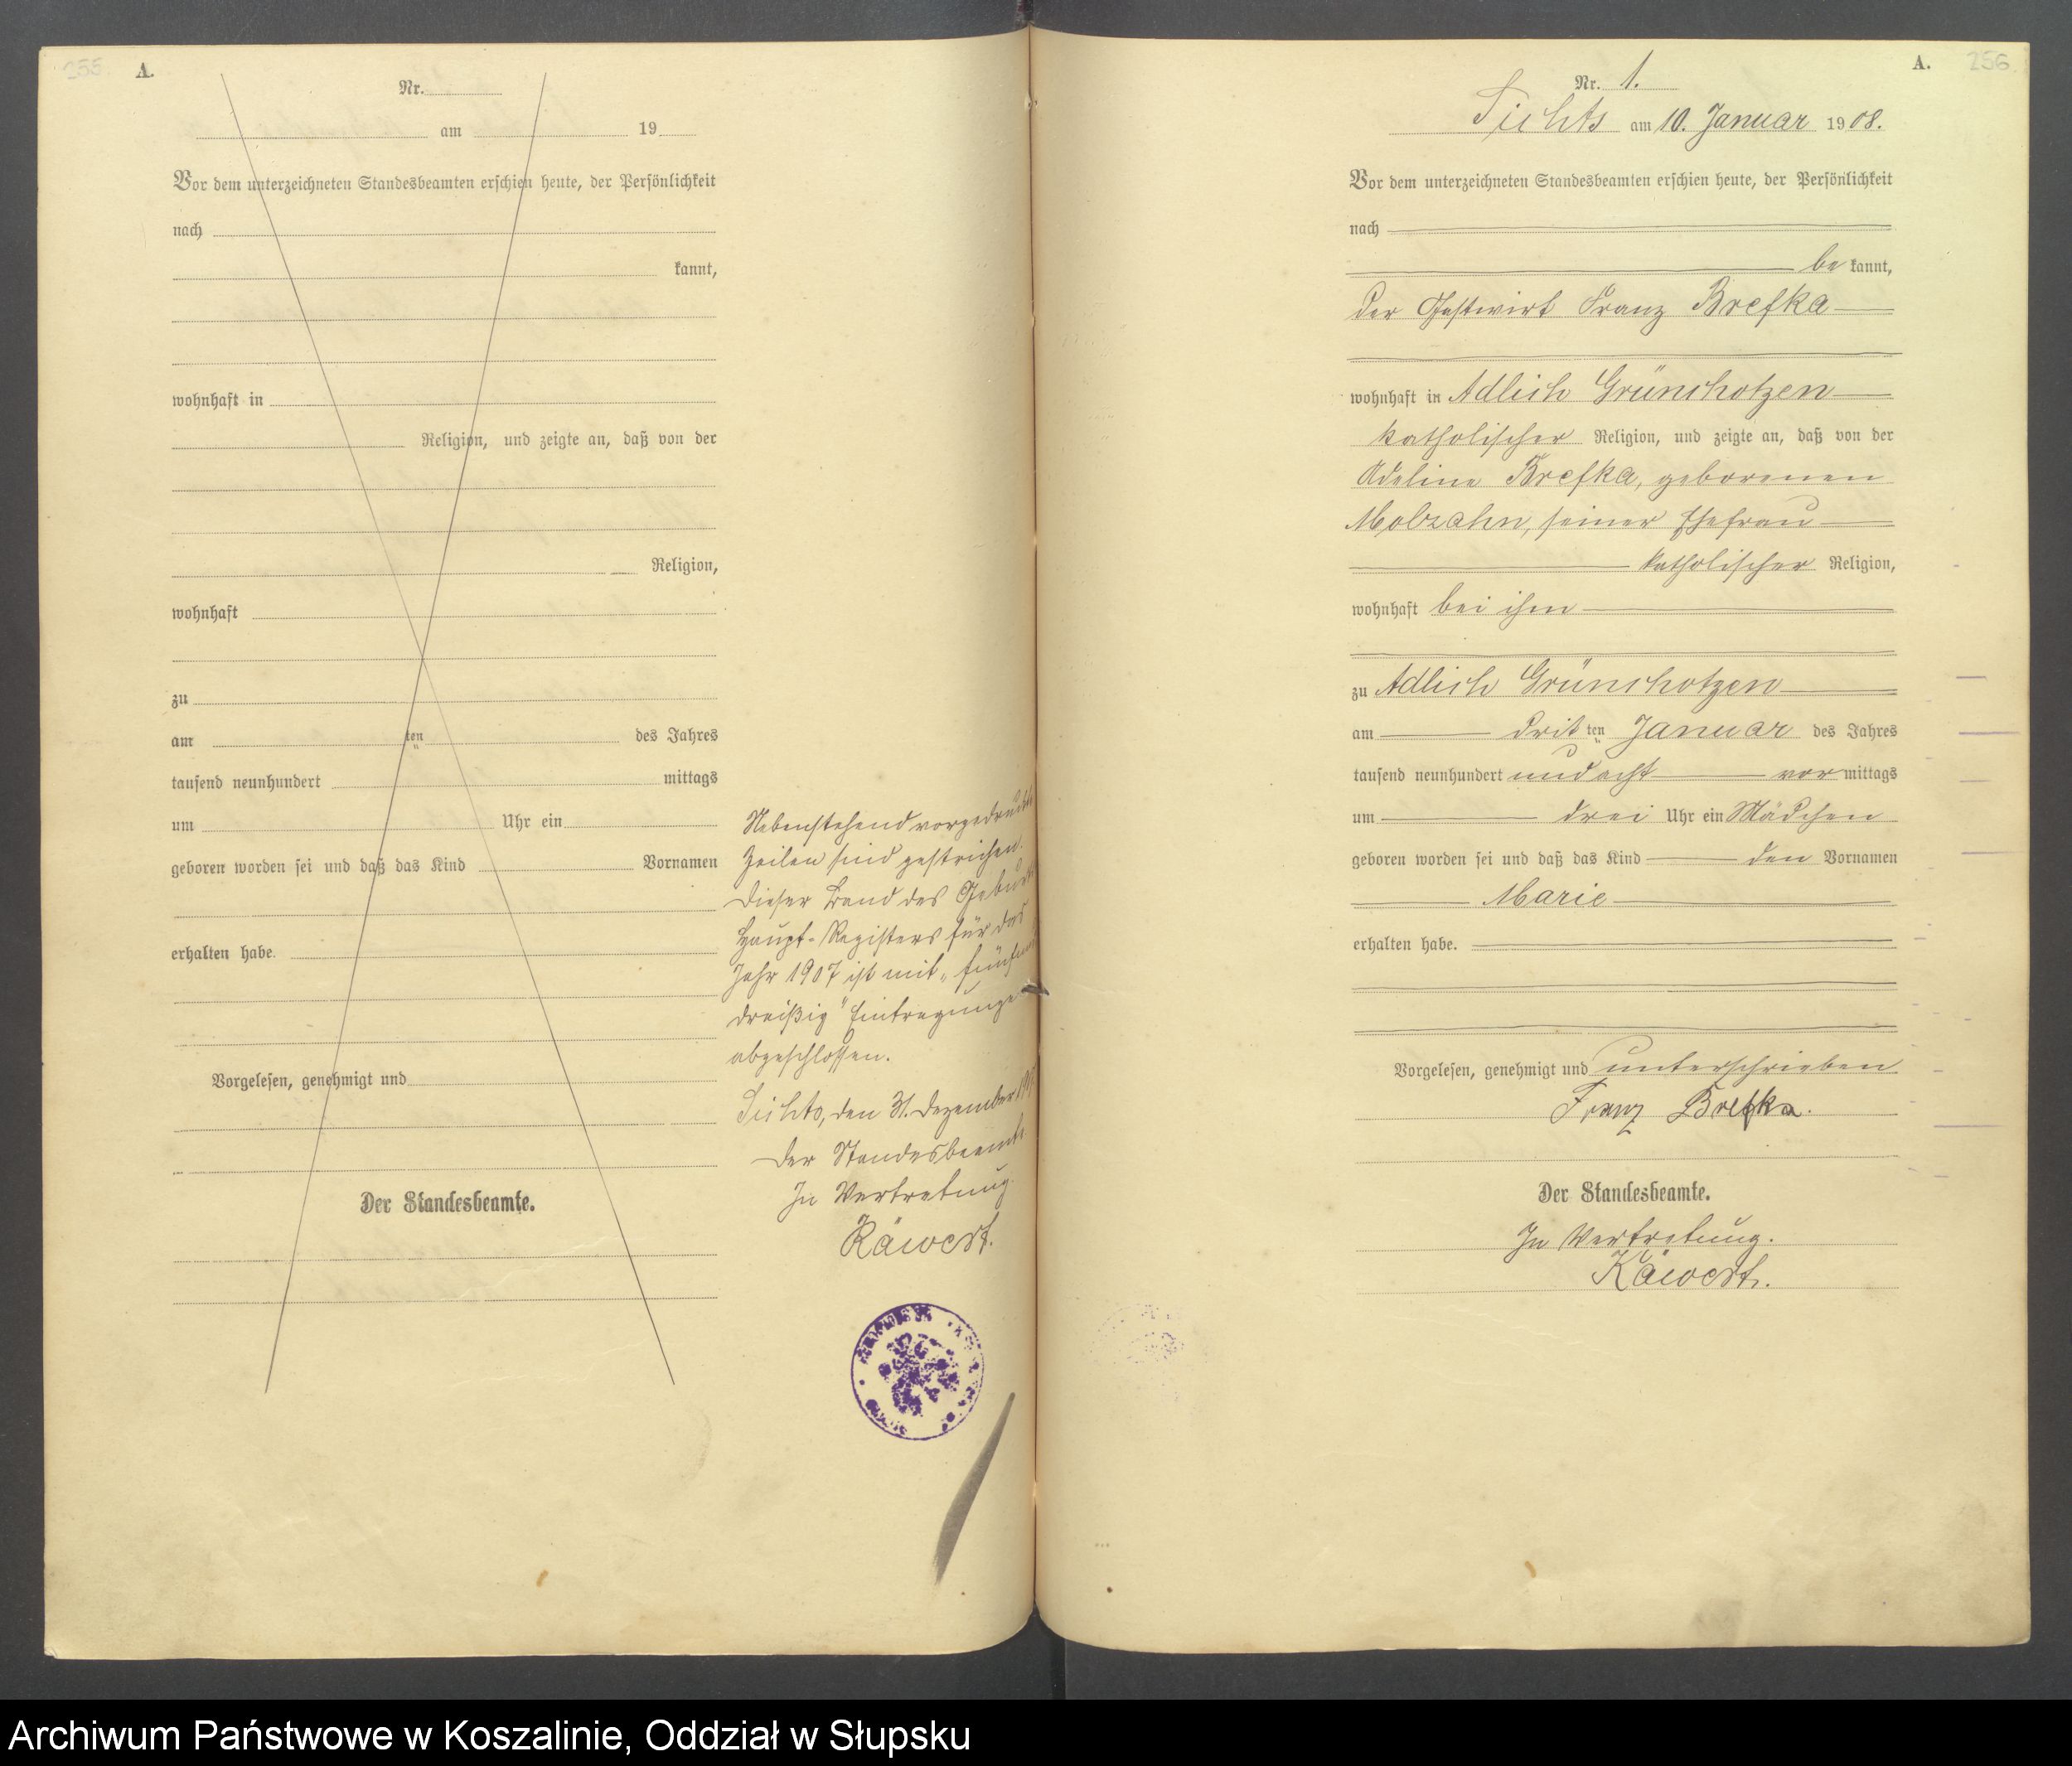 255
A.
Nr.
am 19
Vor dem unterzeichneten Standesbeamten erschien heute, der Persönlichkeit
nach
kannt,
wohnhaft in
Religion, und zeigte an, daß von der
Religion,
wohnhaft
zu
am ten des Jahres
tausend neunhundert mittags
um Uhr ein
geboren worden sei und daß das Kind Vornamen
erhalten habe.
Vorgelesen, genehmigt und
Der Standesbeamte.
Nebenstehend vorgedruckte
Zeilen sind gestrichen.
Dieser Band des Geburts
Haupt-Registers für das
Jahr 1907 ist mit „fünfund
dreißig" Eintragungen
abgeschlossen.
Sichts, den 31. Dezember
Der Standesbeamte
In Vertretung.
Käwert.
A. 256
Nr. 1.
Sichts am 10. Januar 1908.
Vor dem unterzeichneten Standesbeamten erschien heute, der Persönlichkeit
nach
be kannt,
der Gastwirt Franz Brefka
wohnhaft in Adlich Grünchotzen
katholischer Religion, und zeigte an, daß von der
Adeline Brefka, geborenen
Molzahn, seiner Ehefrau
katholischer Religion,
wohnhaft bei ihm
zu Adlich Grünchotzen
am drit ten Januar des Jahres
tausend neunhundert und acht vor mittags
um drei Uhr ein Mädchen
geboren worden sei und daß das Kind den Vornamen
Marie
erhalten habe.
Vorgelesen, genehmigt und unterschrieben
Franz Brefka.
Der Standesbeamte.
In Vertretung.
Käwert.
Archiwum Państwowe w Koszalinie, Oddział w Słupsku